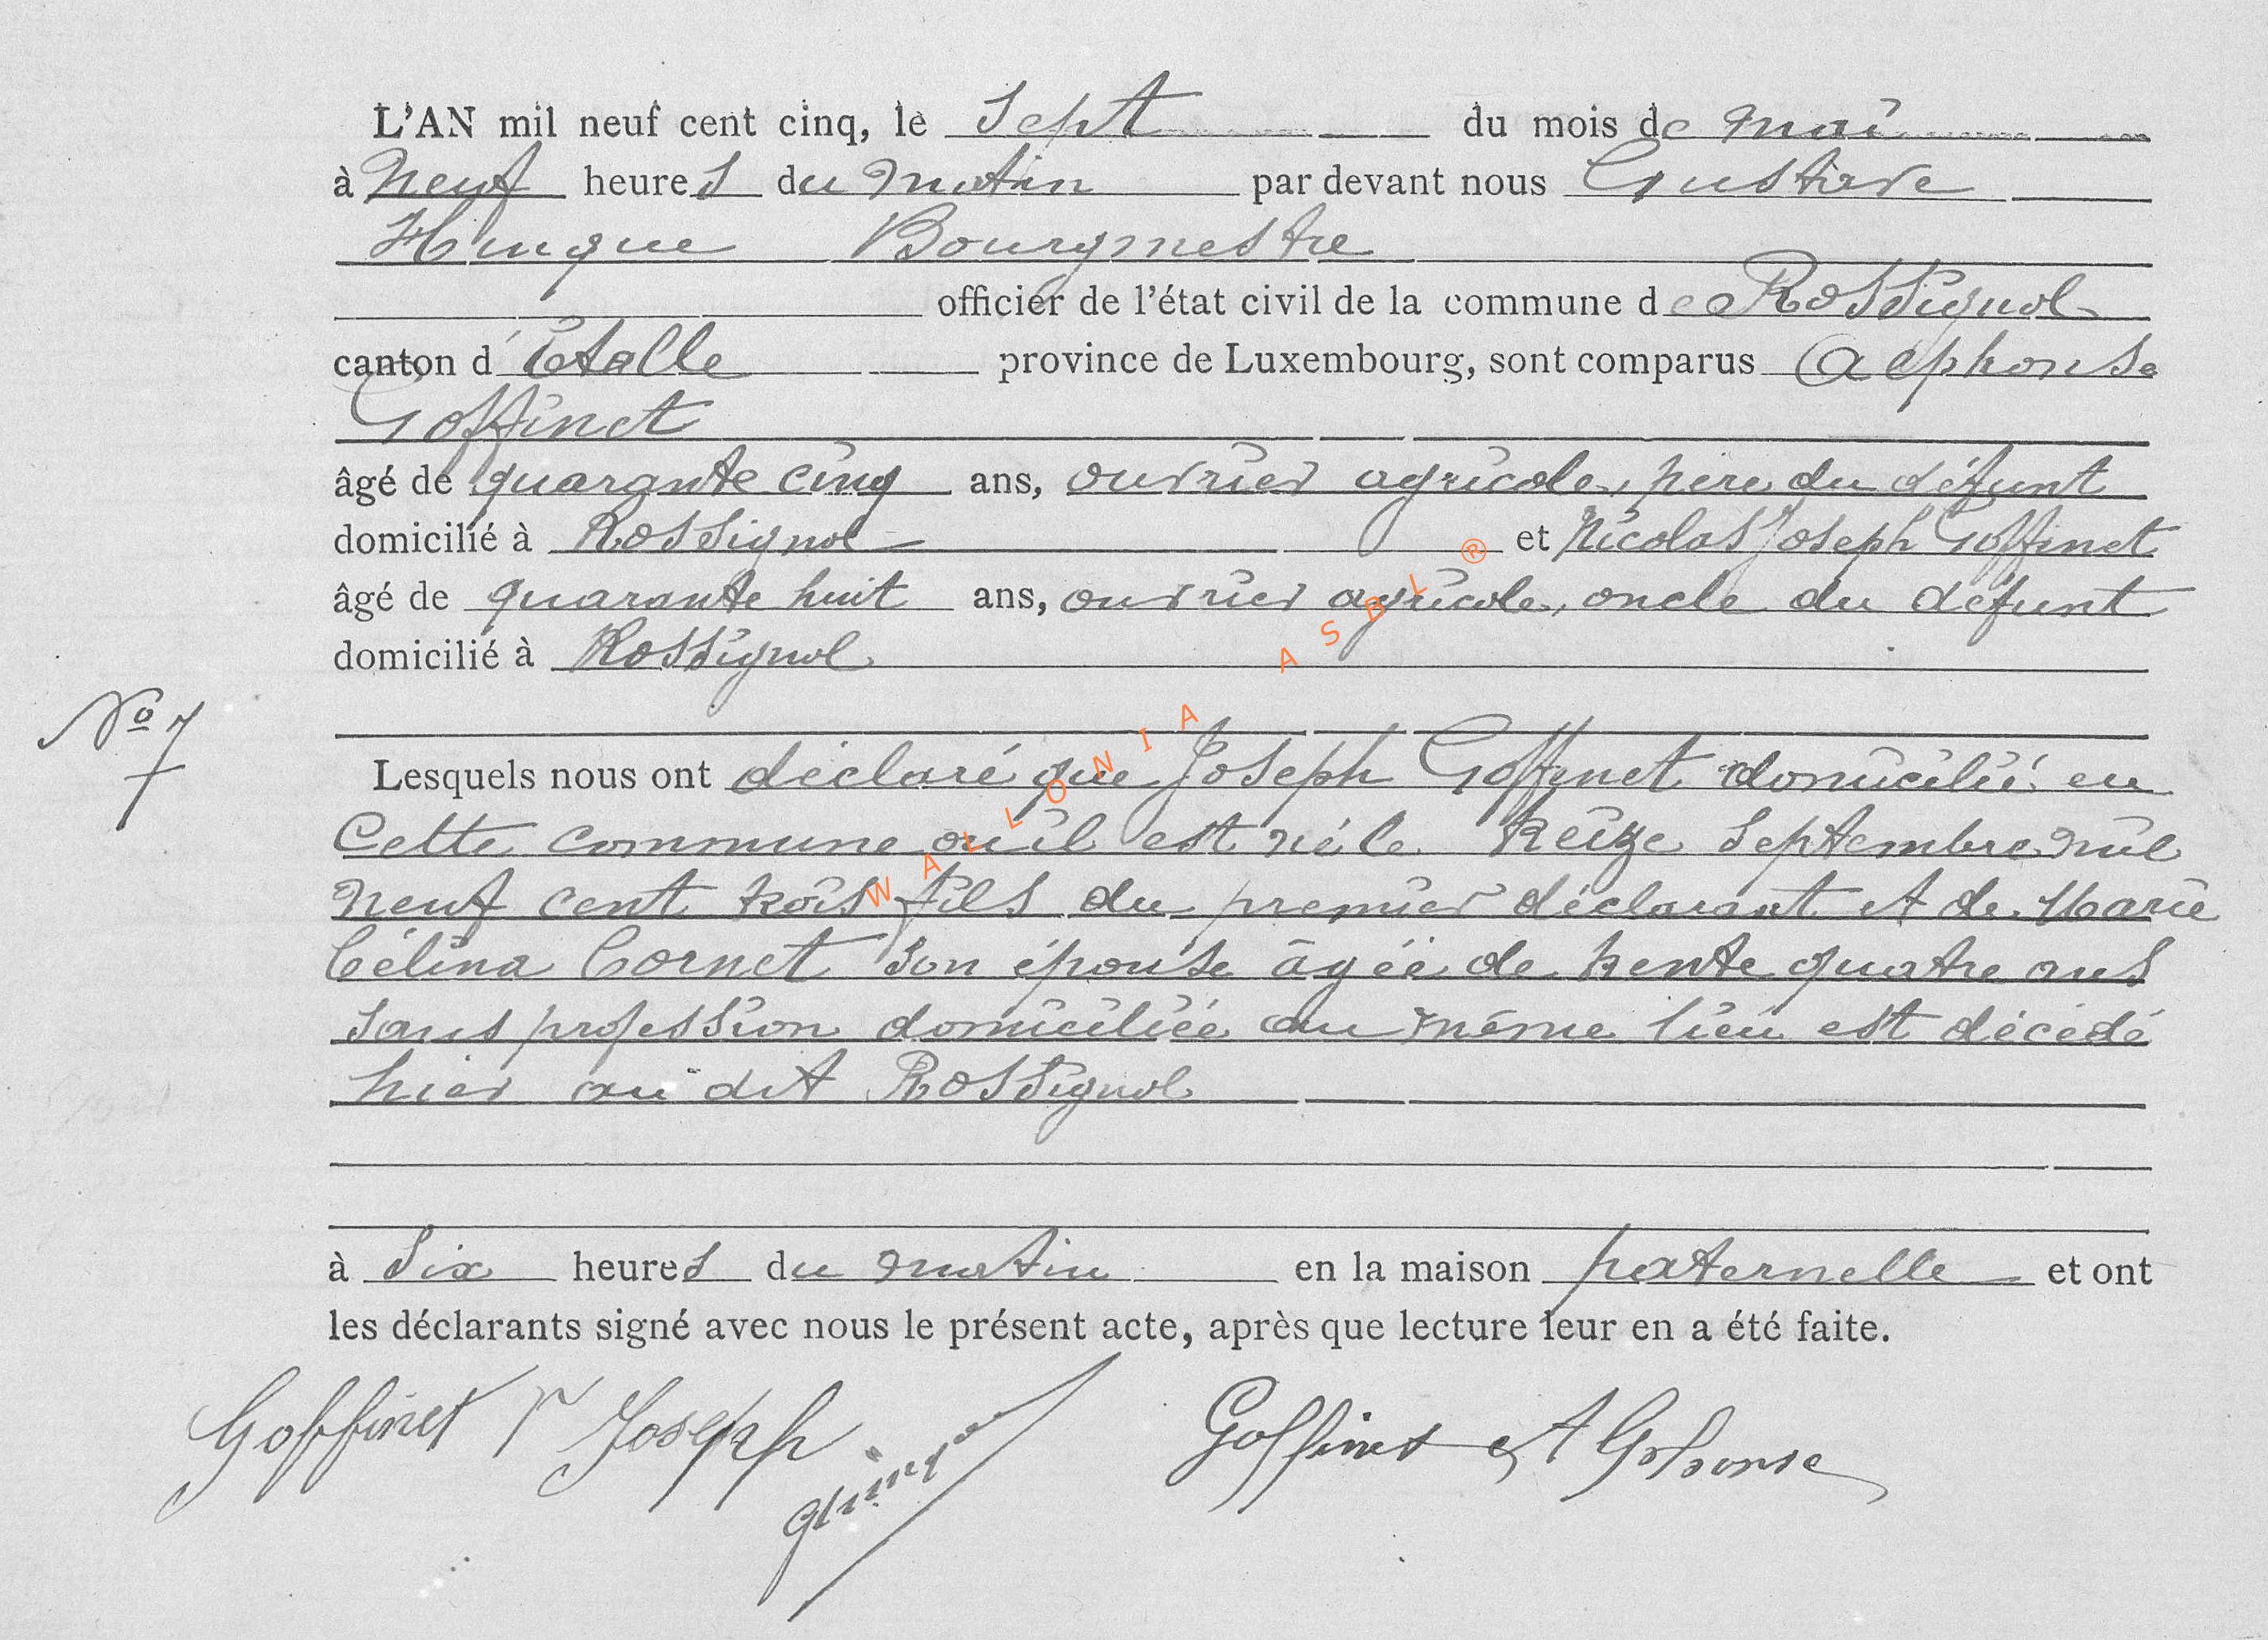 L'AN mil neuf cent cinq, le Sept du mois de mai
à Neuf heures du matin par devant nous Gustave
Hinque Bourgmestre
officier de l'état civil de la commune de Rossignol
canton d'Étalle province de Luxembourg, sont comparus Alphonse
Goffinet
âgé de quarante cinq ans, ouvrier agricole, père du défunt
domicilié à Rossignol et Nicolas Joseph Goffinet
âgé de quarante huit ans, ouvrier agricole, oncle du défunt
domicilié à Rossignol
No 7
Lesquels nous ont déclaré que Joseph Goffinet domicilié en
cette commune où il est né le treize Septembre mil
neuf cent trois fils du premier déclarant et de Marie
Célina Cornet son épouse âgée de trente quatre ans
sans profession domiciliée au même lieu est décédé
hier au dit Rossignol
à Six heures du matin en la maison paternelle et ont
les déclarants signé avec nous le présent acte, après que lecture leur en a été faite.
Goffinet Joseph Goffinet Alphonse
WALLONIA ASBL ®